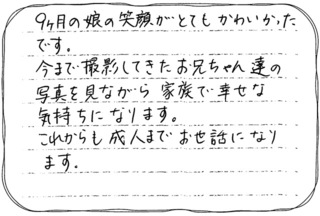 9ヶ月の娘の笑顔がとてもかわいかった
です。
今まで撮影してきたお兄ちゃん達の
写真を見ながら家族で幸せな
気持ちになります。
これからも成人までお世話になり
ます。